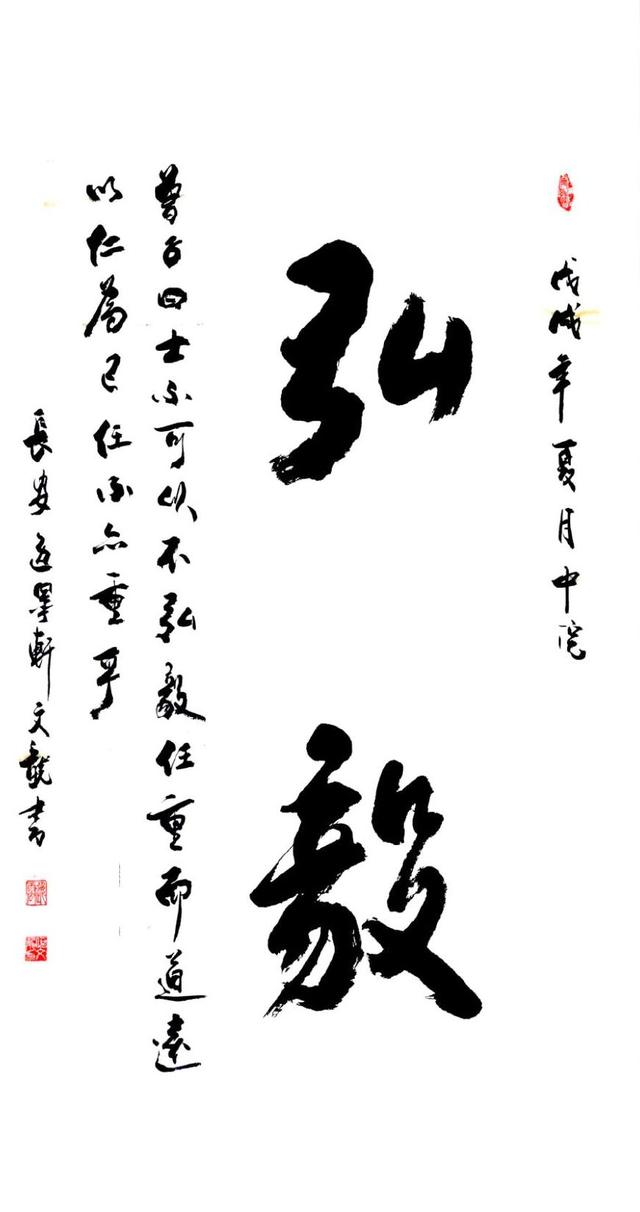 戊戌年夏月中浣
弘毅
曾子曰士不可以不弘毅任重而道遠
以仁爲己任不亦重乎
長安墨軒文龍書